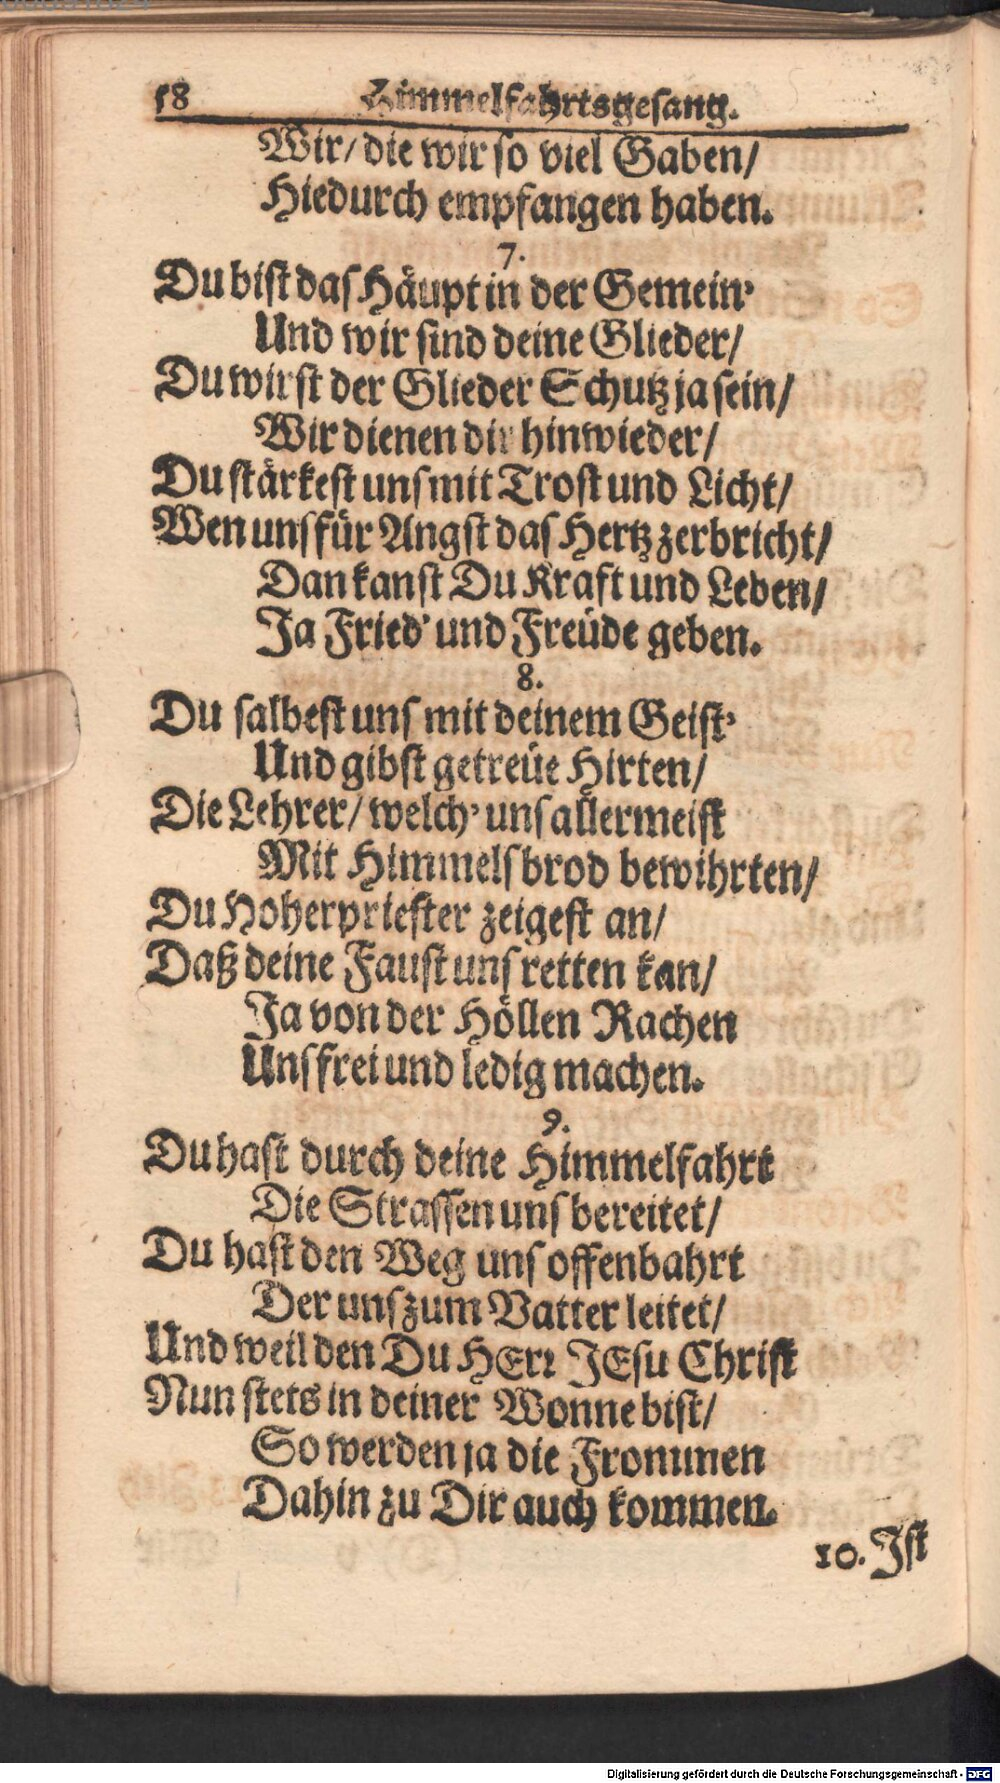 18 Himmelfahrtsgesang.
Wir/ die wir so viel Gaben/
Hiedurch empfangen haben.
7.
Du bist das Häupt in der Gemein'
Und wir sind deine Glieder/
Du wirst der Glieder Schutz ja sein/
Wir dienen dir hinwieder/
Du stärkest uns mit Trost und Licht/
Wen uns für Angst das Hertz zerbricht/
Dan kanst Du Kraft und Leben/
Ja Fried' und Freüde geben.
8.
Du salbest uns mit deinem Geist'
Und gibst getreüe Hirten/
Die Lehrer/ welch' uns allermeist
Mit Himmelsbrod bewihrten/
Du Hoherpriester zeigest an/
Daß deine Faust uns retten kan/
Ja von der Höllen Rachen
Uns frei und ledig machen.
9.
Du hast durch deine Himmelfahrt
Die Strassen uns bereitet/
Du hast den Weg uns offenbahrt
Der uns zum Vatter leitet/
Und weil den Du HErr JEsu Christ
Nun stets in deiner Wonne bist/
So werden ja die Frommen
Dahin zu Dir auch kommen.
10. Ist
Digitalisierung gefördert durch die Deutsche Forschungsgemeinschaft - DFG